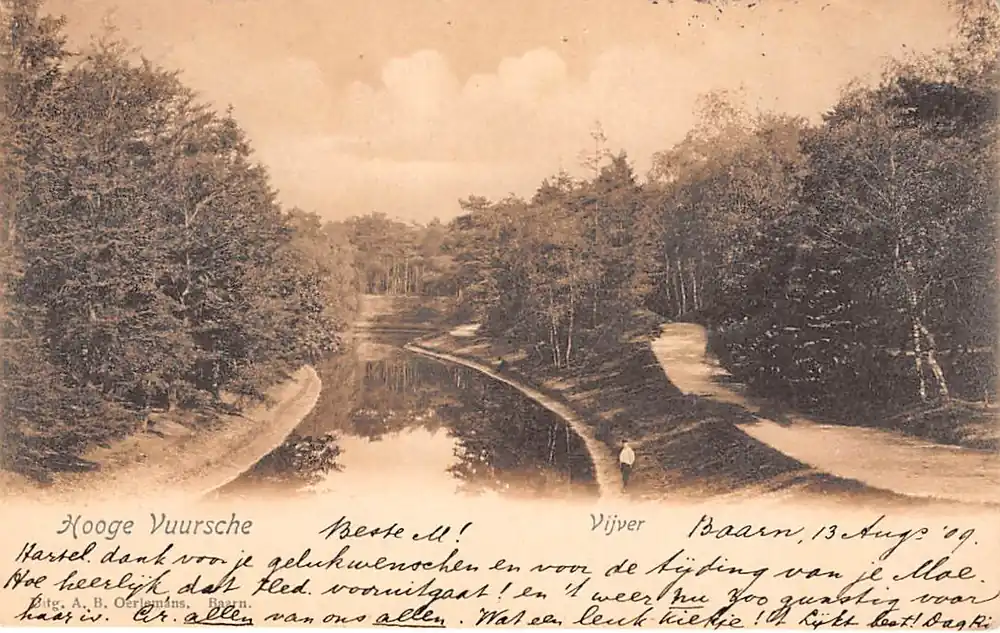 Hooge Vuursche
Vijver
Beste M!
Baarn, 13 Augs '09.
Hartel. dank voor je gelukwenschen en voor de tijding van je Moe.
Hoe heerlijk dat vooruitgaat! en 't weer nu zoo gunstig voor
Uitg. A. B. Oerlemans, Baarn.
haar is. Gr. allen van ons allen. Wat een leuk kiekje! 't Lijkt best! Dag